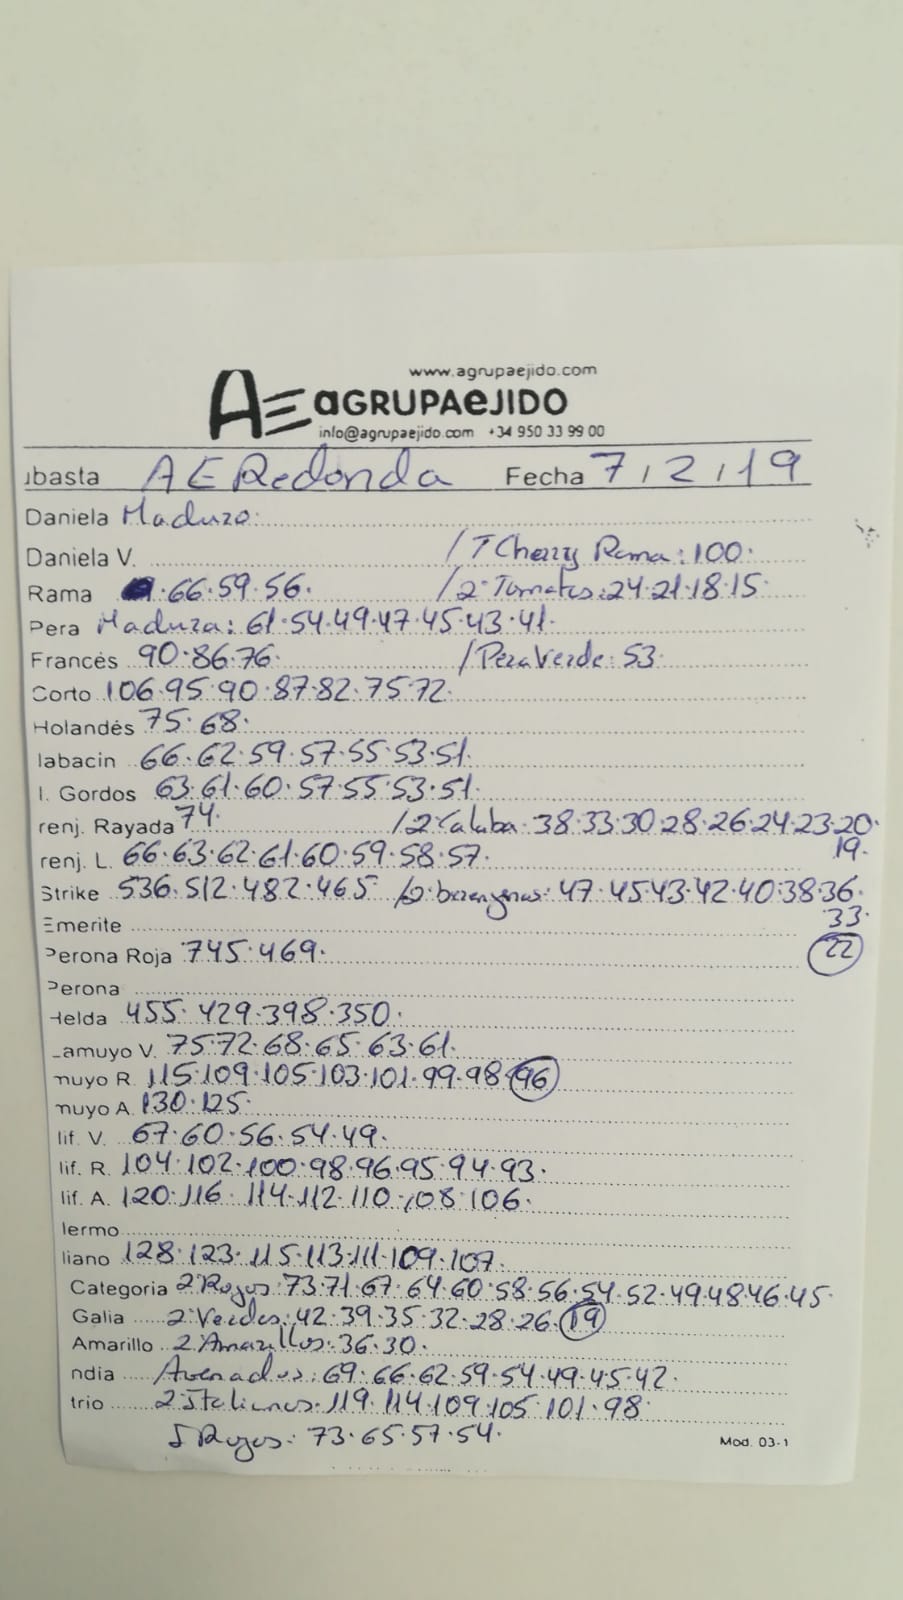 www.agrupaejido.com
AE aGRUPAeJIDO
info@agrupaejido.com +34 950 33 99 00
ubasta AE Redonda Fecha 7/2/19
Daniela Maduro:
Daniela V. / T Cherry Rama: 100.
Rama .66.59.56. / 2ª Tomates: 24.21.18.15
Pera Madura: 61.54.49.47.45.43.41.
Francés 90.86.76. / Pera Verde: 53.
Corto 106.95.90.87.82.75.72.
Holandés 75.68.
labacin 66.62.59.57.55.53.51.
l. Gordos 63.61.60.57.55.53.51.
renj. Rayada 74. / 2ª Calaba: 38.33.30.28.26.24.23.20.
19.
renj. L. 66.63.62.61.60.59.58.57.
Strike 536.512.482.465 / 2ª berengenas: 47.45.43.42.40.38.36.
33.
Emerite
22
Perona Roja 745.469.
Perona
Helda 455.429.398.350.
Lamuyo V. 75.72.68.65.63.61.
muyo R. 115.109.105.103.101.99.98.96
muyo A. 130.125.
lif. V. 67.60.56.54.49.
lif. R. 104.102.100.98.96.95.94.93.
lif. A. 120.116.114.112.110.108.106.
lermo
liano 128.123.115.113.111.109.107.
Categoria 2ª Rojos: 73.71.67.64.60.58.56.54.52.49.48.46.45.
Galia 2ª Verdes: 42.39.35.32.28.26.19
Amarillo 2ª Amarillos: 36.30.
ndia Asenados: 69.66.62.59.54.49.45.42.
trio 2ª Italianos: 119.114.109.105.101.98.
S Rojos: 73.65.57.54.
Mod. 03-1